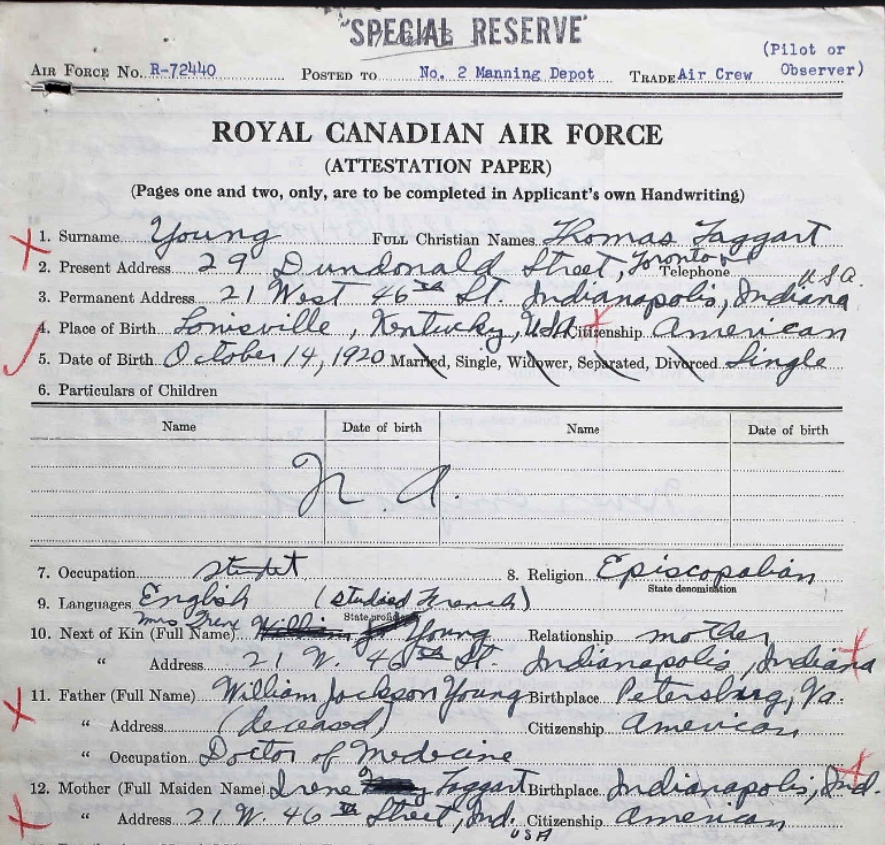 "SPECIAL RESERVE"
(Pilot or
AIR FORCE No. R-72440 POSTED TO No. 2 Manning Depot TRADE Air Crew Observer)
ROYAL CANADIAN AIR FORCE
(ATTESTATION PAPER)
(Pages one and two, only, are to be completed in Applicant's own Handwriting)
1. Surname Young FULL Christian Names Thomas Taggart
2. Present Address 29 Dundonald Street, Toronto Telephone
3. Permanent Address 21 West 46th St. Indianapolis, Indiana U.S.A.
4. Place of Birth Louisville, Kentucky, USA Citizenship American
5. Date of Birth October 14, 1920 Married, Single, Widower, Separated, Divorced Single
6. Particulars of Children
Name Date of birth Name Date of birth
N. A.
7. Occupation student 8. Religion Episcopalian
State denomination
9. Languages English (studied French)
State proficiency
10. Next of Kin (Full Name) Mrs Irene William Jr Young Relationship mother
" Address 21 W. 46th St. Indianapolis, Indiana
11. Father (Full Name) William Jackson Young Birthplace Petersburg, Va.
" Address (deceased) Citizenship American
" Occupation Doctor of Medecine
12. Mother (Full Maiden Name) Irene Taggart Birthplace Indianapolis, Ind.
" Address 21 W. 46th Street, Ind. USA Citizenship American